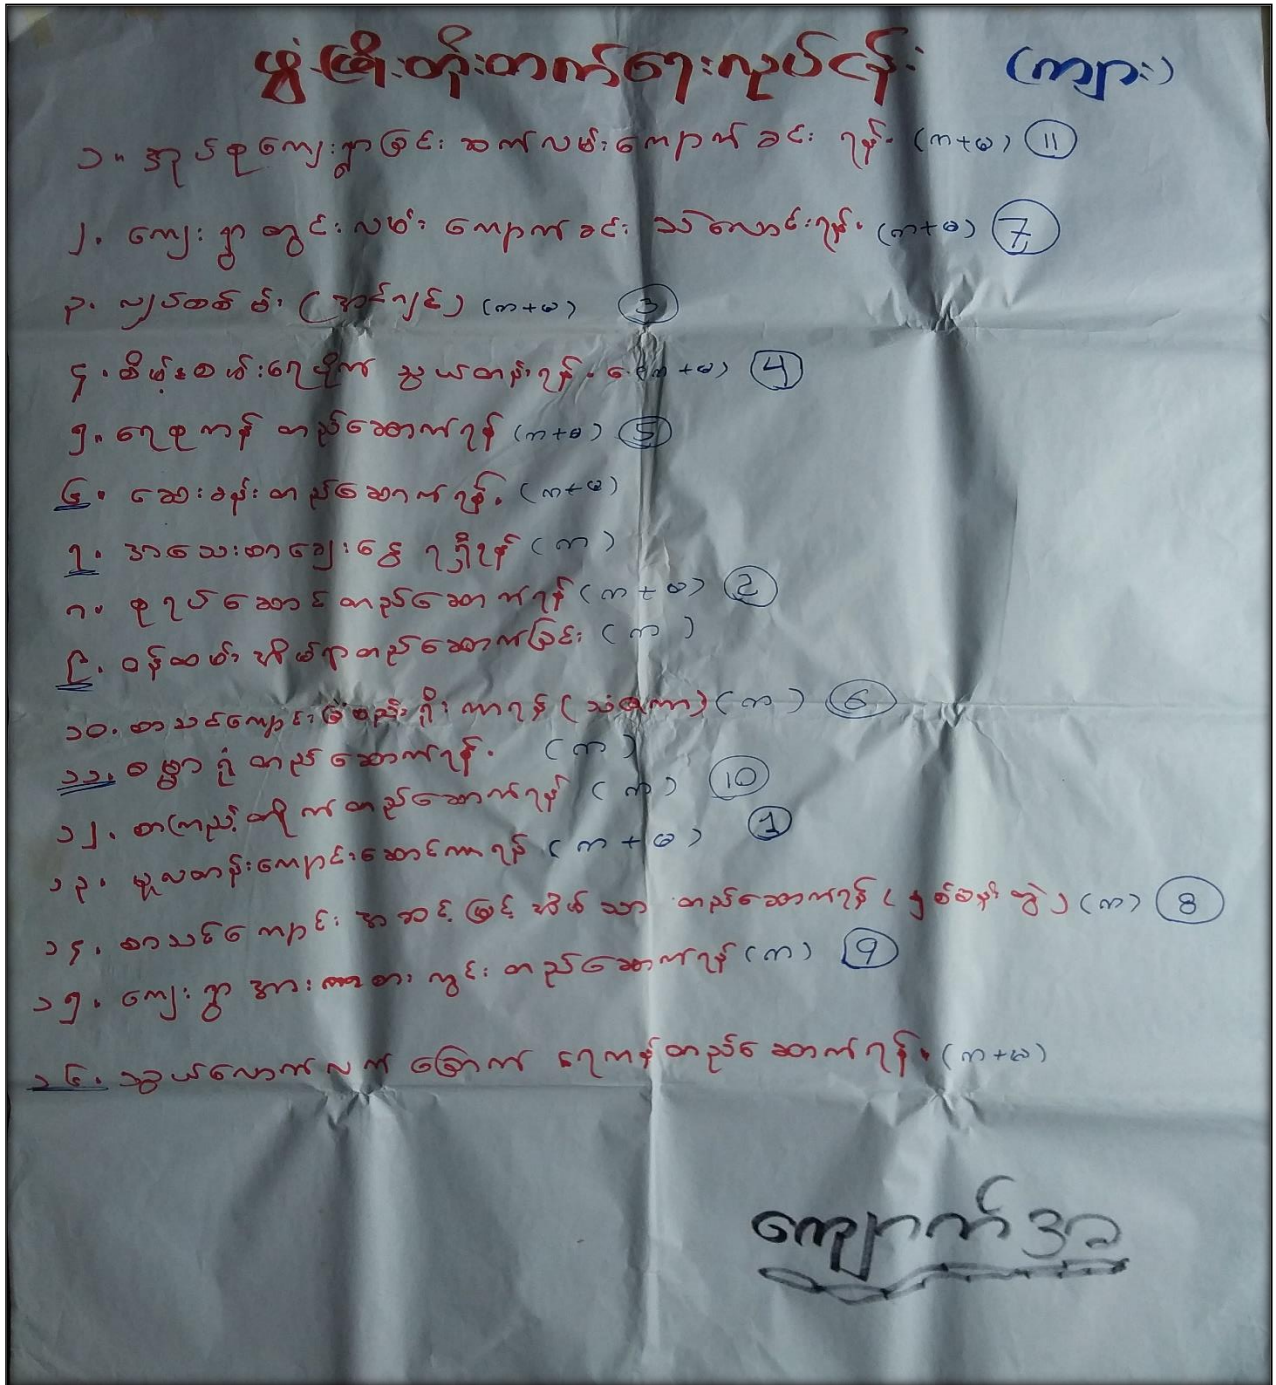 ဖွံ့ဖြိုးတိုးတက်ရေးလုပ်ငန်း (ကျား)
၁။ အုပ်စုကျေးရွာခြင်း ဆက်လမ်းကျောက်ခင်း ရန်။ (က+မ) 11
၂. ကျေးရွာတွင်းလမ်း ကျောက်ခင်း သဲလောင်းရန်။ (က+မ) 7
၃. လျှပ်စစ်မီး (က+မ) 3
၄. စိမ့်စမ်းရေပိုက် သွယ်တန်းရန်။ (က+မ) 4
၅။ ရေစုကန် တည်ဆောက်ရန် (က+မ) 5
၆. ဆေးခန်းတည်ဆောက်ရန်. (က+မ)
၇. အသေးစားချေးငွေ ရရှိရန် (က)
၈. စုရပ်ဆောင်တည်ဆောက်ရန် (က+မ) 2
၉. ဝန်ထမ်း အိမ်ရာတည်ဆောက်ခြင်း (က)
၁၀. စာသင်ကျောင်းခြံစည်းရိုး ကာရန် (သံဇကာ) (က) 6
၁၁. ဓမ္မာရုံတည်ဆောက်ရန်. (က)
၁၂. စာကြည့်တိုက်တည်ဆောက်ရန် (က) 10
၁၃. မူလတန်းကျောင်းဆောင်ကာရန် (က+မ) 1
၁၄. စာသင်ကျောင်း အဆင့်မြင့် အိမ်သာ တည်ဆောက်ရန် (၂ခန်းတွဲ) (က) 8
၁၅. ကျေးရွာ အားကစား ကွင်း တည်ဆောက်ရန် (က) 9
၁၆. သွယ်လောက်လက် မြောက် ရေကန်တည်ဆောက်ရန်. (က+မ)
ကျောက်အခ